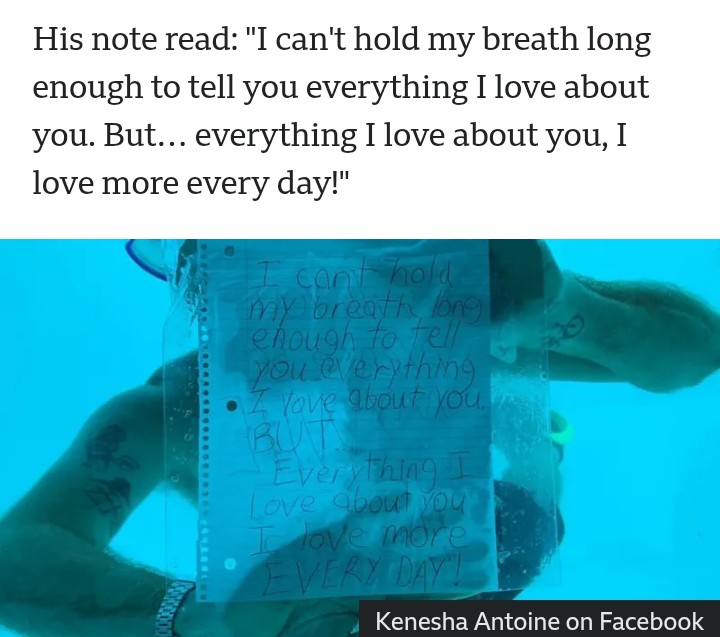 His note read: "I can't hold my breath long
enough to tell you everything I love about
you. But… everything I love about you, I
love more every day!"
I can't hold
my breath long
enough to tell
you everything
I love about you.
BUT...
Everything I
Love about you
I love more
EVERY DAY!
Kenesha Antoine on Facebook